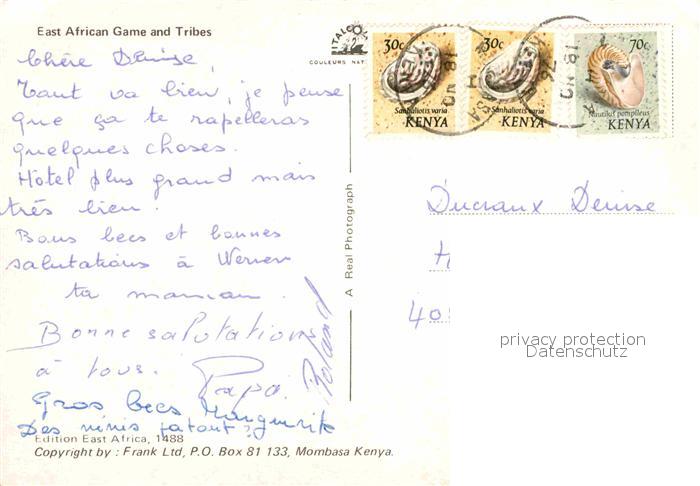 East African Game and Tribes
Chère Denise,
Tout va bien, je pense
que ça te rapelleras
quelques choses.
Hôtel plus grand mais
très bien.
Bons becs et bonnes
salutations à Werner
ta maman.
Bonne salutations
à tous. Papa.
Roland
Gros becs Marguerite
Des minis partout?
Edition East Africa, 1488
Copyright by : Frank Ltd, P.O. Box 81 133, Mombasa Kenya.
A Real Photograph
ITALCOLOR
COULEURS NAT
30c
Sanhaliotis varia
KENYA
30c
Sanhaliotis varia
KENYA
70c
Nautilus pompileus
KENYA
Ducraux Denise
H
40
privacy protection
Datenschutz